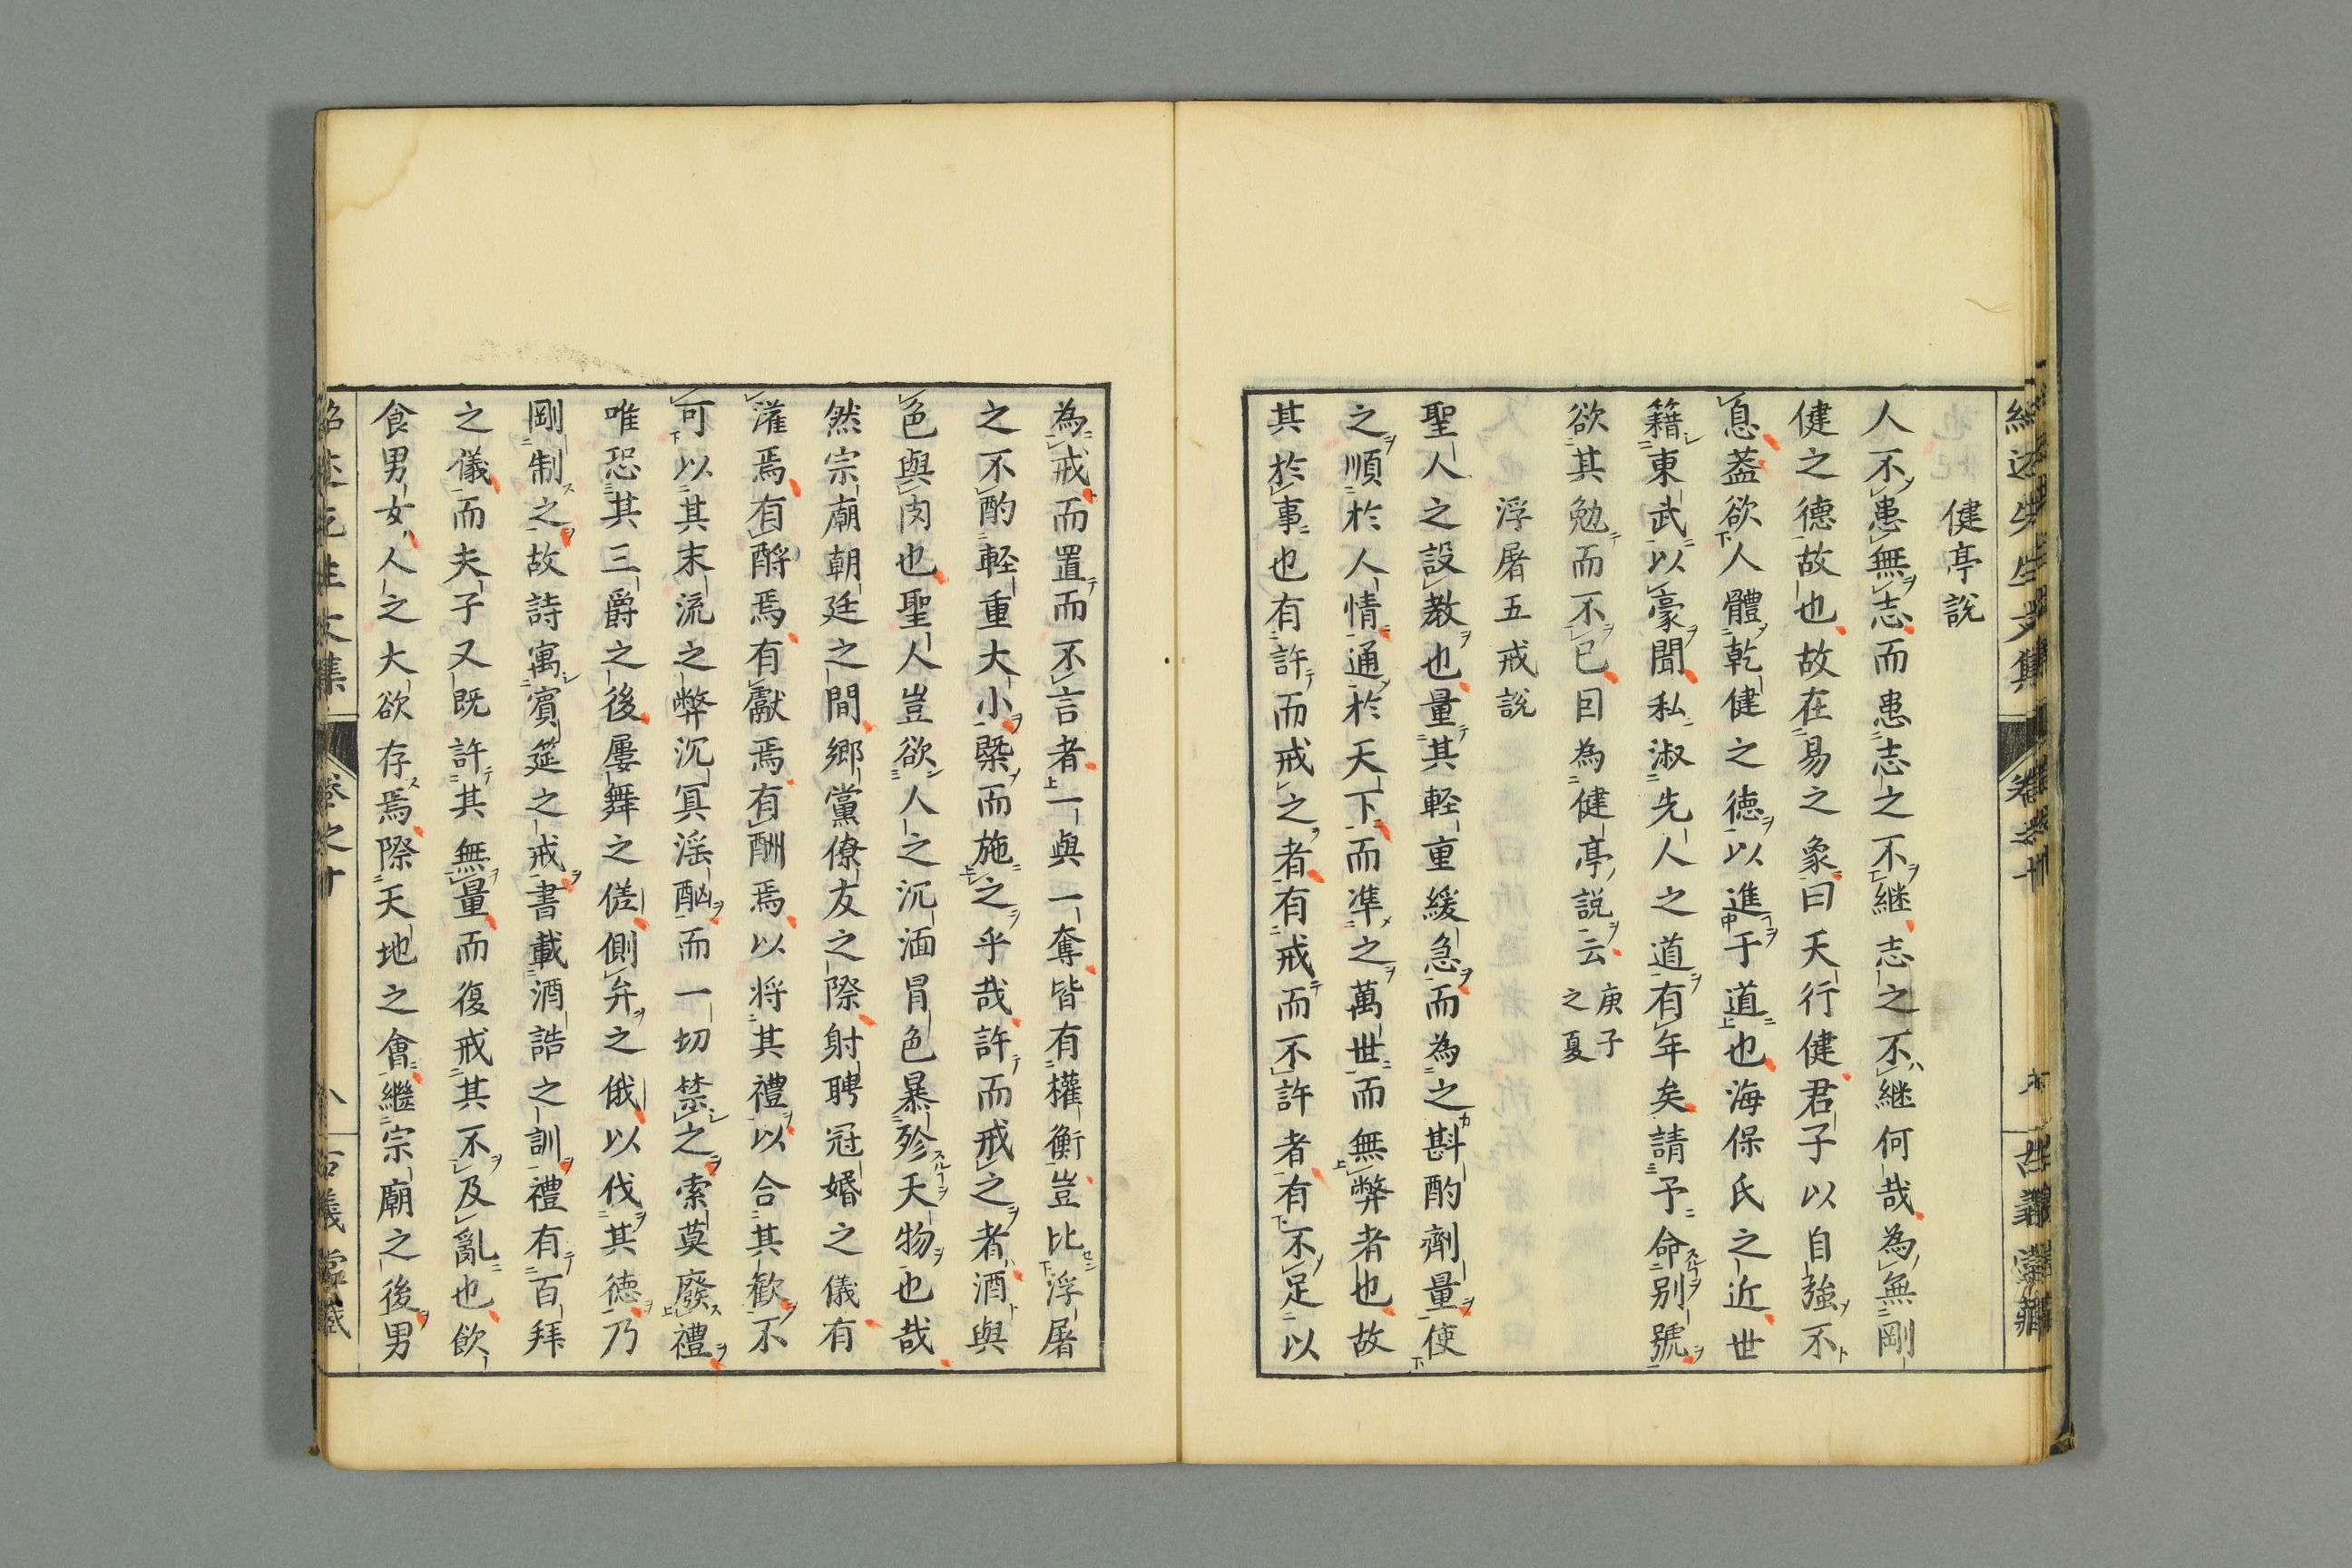 健亭說
人不患無志而患志之不継志之不継何哉為無剛
健之德故也故在易之象曰天行健君子以自強不
息葢欲人體乾健之德以進于道也海保氏之近世
籍東武以豪聞私淑先人之道有年矣請予命别號
欲其勉而不已因為健亭說云庚子之夏
浮屠五戒說
聖人之設教也量其軽重緩急而為之斟酌劑量使
之順於人情通於天下而準之萬世而無弊者也故
其於事也有許而戒之者有戒而不許者有不足以
為戒而置而不言者一與一奪皆有權衡豈比浮屠
之不酌軽重大小槩而施之乎哉許而戒之者酒與
色與肉也聖人豈欲人之沉湎冒色暴殄天物也哉
然宗廟朝廷之間鄉黨僚友之際射聘冠婚之儀有
灌焉有酹焉有獻焉有酬焉以将其禮以合其歡不
可以其末流之弊沉冥淫酗而一切禁之索莫廢禮
唯恐其三爵之後屢舞之傞側弁之俄以伐其德乃
剛制之故詩寓賓筵之戒書載酒誥之訓禮有百拜
之儀而夫子又既許其無量而復戒其不及亂也飲
食男女人之大欲存焉際天地之會繼宗廟之後男
紹述先生文集
卷之十
八
古義堂藏